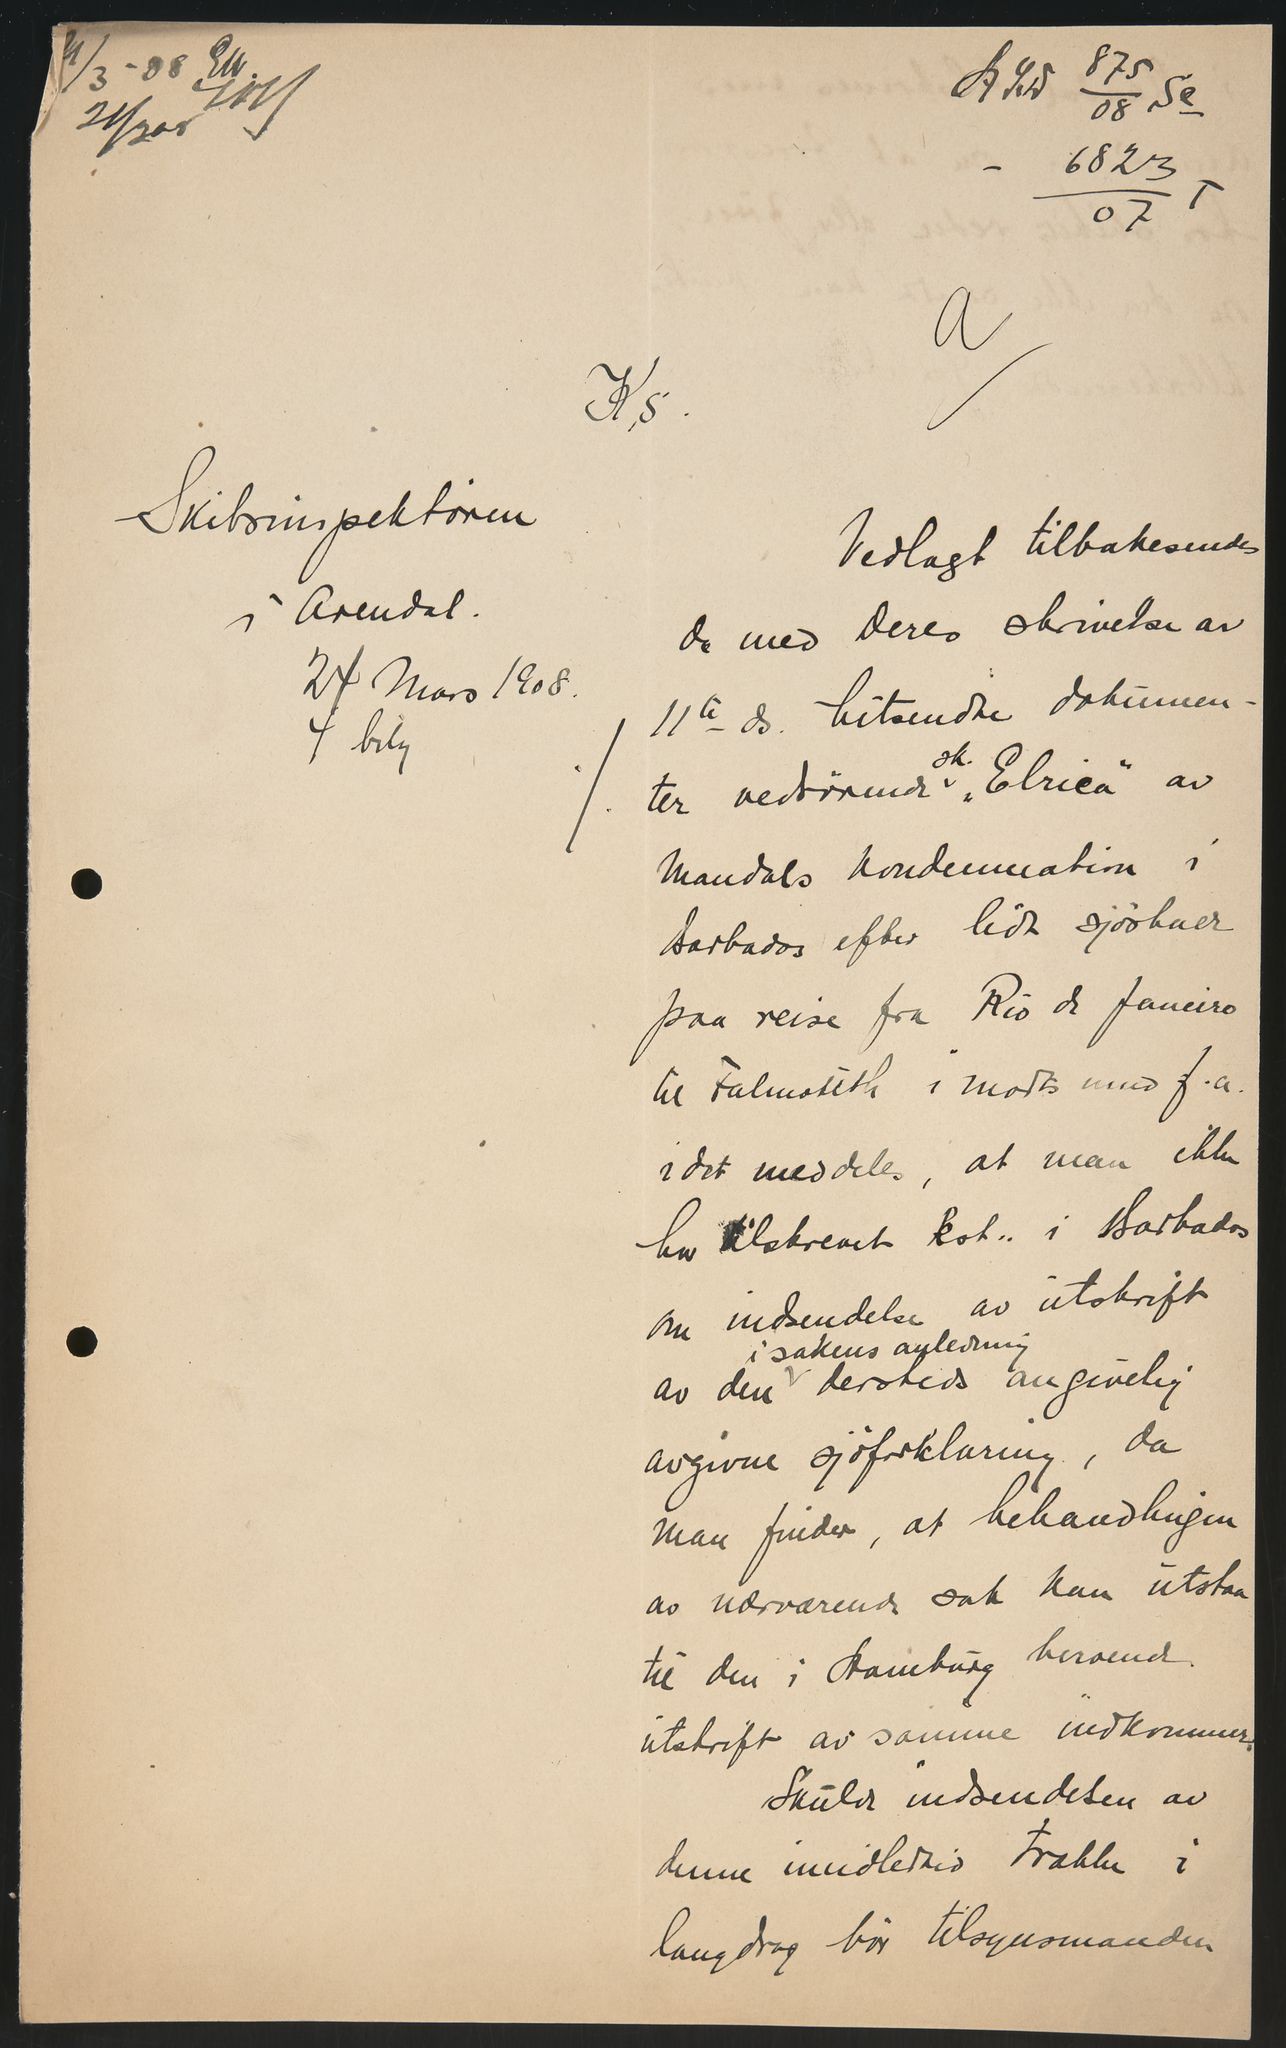 /3 - 08
875
08 Se
- 6823
07 T
a
Ks.
Skibsinspektøren
i Arendal.
24 Mars 1908.
4 bilg
Vedlagt tilbakesendes
de med Deres skrivelse av
11te ds. hitsendte dokumen-
ter vedrørende sk. "Elrica" av
Mandals kondemnation i
Barbados efter lidt sjøskade
paa reise fra Rio de Janeiro
til Falmouth i mods
idet meddeles, at man ikke
har tilskrevet i Barbados
om indsendelse av utskrift
av den i sakens anledning dersteds angivelig
avgivne sjøforklaring, da
man finder, at behandlingen
av nærværende sak kan utstaa
til den i Hamburg beroende
utskrift av samme indkommer.
Skulde indsendelsen av
denne imidlertid trække i
langdrag bør tilsynsmanden